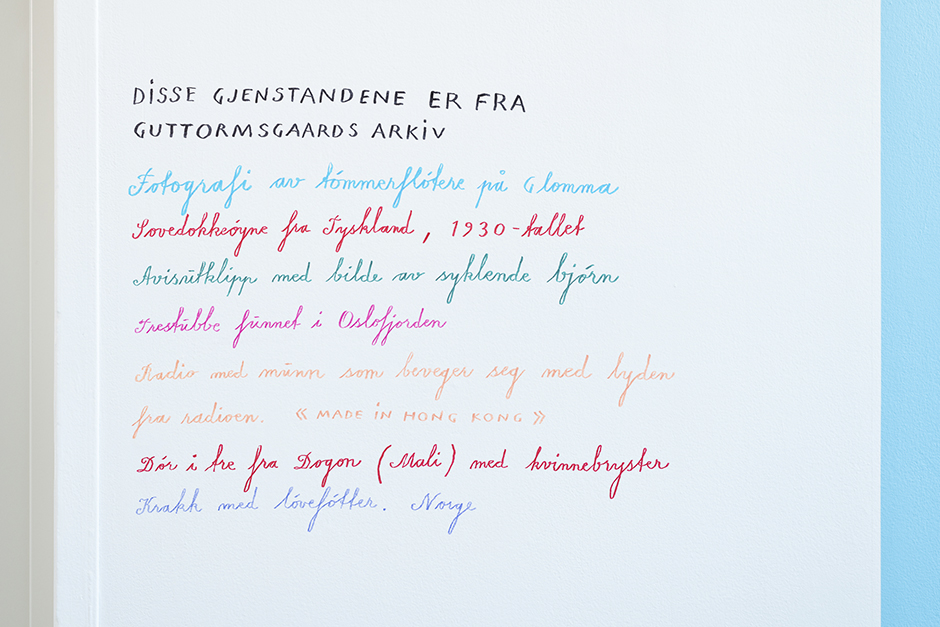 DISSE GJENSTANDENE ER FRA
GUTTORMSGAARDS ARKIV
Fotografi av tómmerflótere på Glomma
Sovedokkeóyne fra Tyskland, 1930-tallet
Avisūtklipp med bilde av syklende bjórn
Trestūbbe fūnnet i Oslofjorden
Radio med mūnn som beveger seg med lyden
fra radioen. « MADE IN HONG KONG »
Dór i tre fra Dogon (Mali) med kvinnebryster
Krakk med lóvefótter. Norge